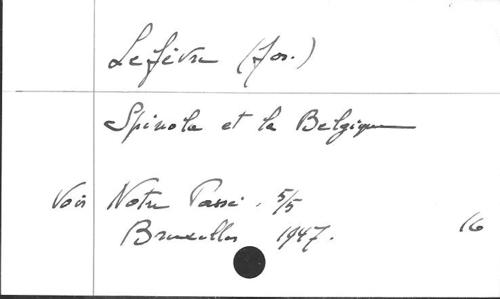 Lefèvre (Jos.)
Spinola et la Belgique
Voir Notre Passé. 5/5
Bruxelles 1947.
16